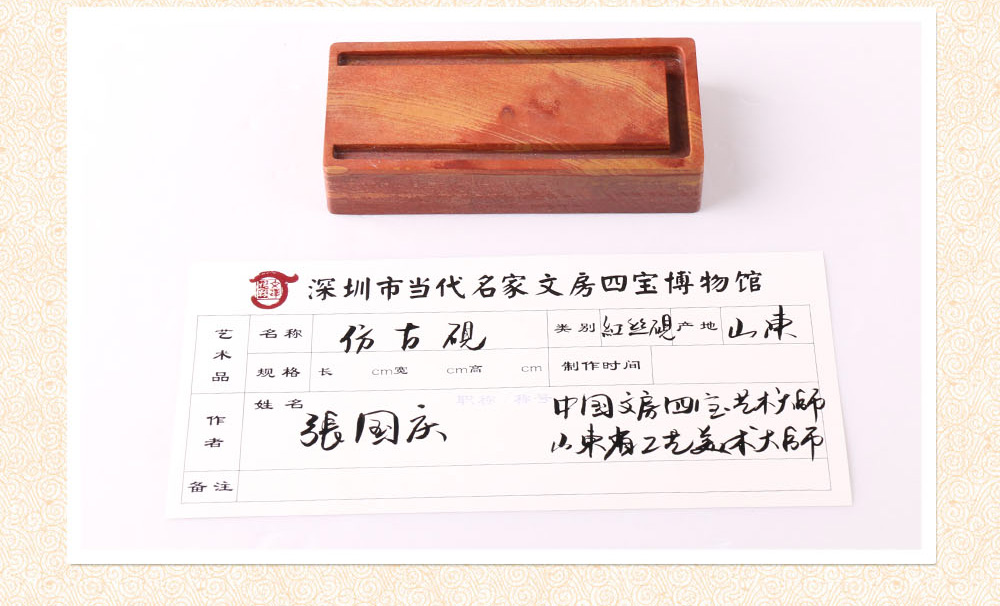 深圳市当代名家文房四宝博物馆
艺术品 名称 仿古硯 类别 紅丝硯 产地 山東
规格 长 cm宽 cm高 cm 制作时间
作者 姓名 張国庆 职称 称号 中国文房四宝艺术大师
山東省工艺美术大师
备注